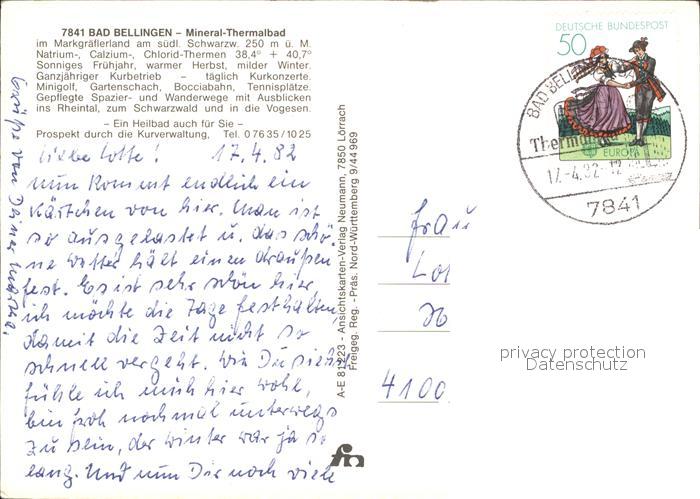 7841 BAD BELLINGEN – Mineral-Thermalbad
im Markgräflerland am südl. Schwarzw. 250 m ü. M.
Natrium-, Calzium-, Chlorid-Thermen 38,4° + 40,7°
Sonniges Frühjahr, warmer Herbst, milder Winter.
Ganzjähriger Kurbetrieb – täglich Kurkonzerte.
Minigolf, Gartenschach, Bocciabahn, Tennisplätze.
Gepflegte Spazier- und Wanderwege mit Ausblicken
ins Rheintal, zum Schwarzwald und in die Vogesen.
– Ein Heilbad auch für Sie –
Prospekt durch die Kurverwaltung, Tel. 0 76 35 / 10 25
Liebe Lotte! 17.4.82
nun kommt endlich ein
Kärtchen von hier. Man ist
so ausgelastet u. das schö-
ne Wetter hält einen draußen
fest. Es ist sehr schön hier,
ich möchte die Tage festhalten,
damit die Zeit nicht so
schnell vergeht. Wie Du siehst
fühle ich mich hier wohl,
bin froh nochmal unterwegs
zu sein, der Winter war ja so
lang. Und nun Dir noch viele
Grüße von Deiner
A-E 81 223 - Ansichtskarten-Verlag Neumann, 7850 Lörrach
Freigeg. Reg. - Präs. Nord-Württemberg 9/44 969
DEUTSCHE BUNDESPOST
50
EUROPA
BAD BELLIN
Therm
17.-4.82-12
7841
Frau
Lot
4100
privacy protection
Datenschutz